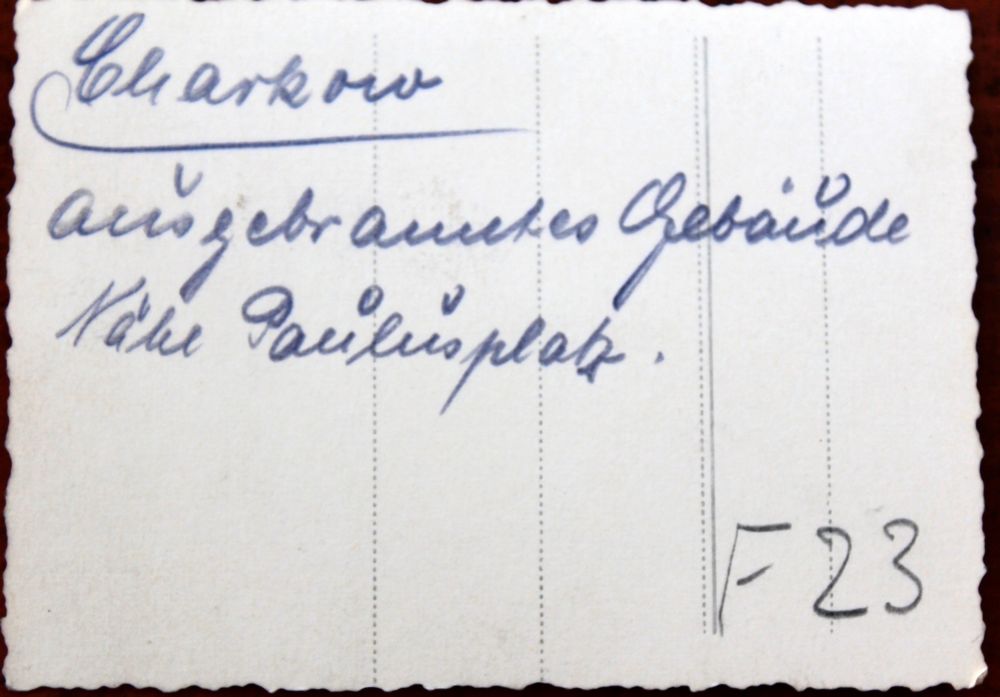 Charkow
ausgebranntes Gebäude
Nähe Paulusplatz.
F 23